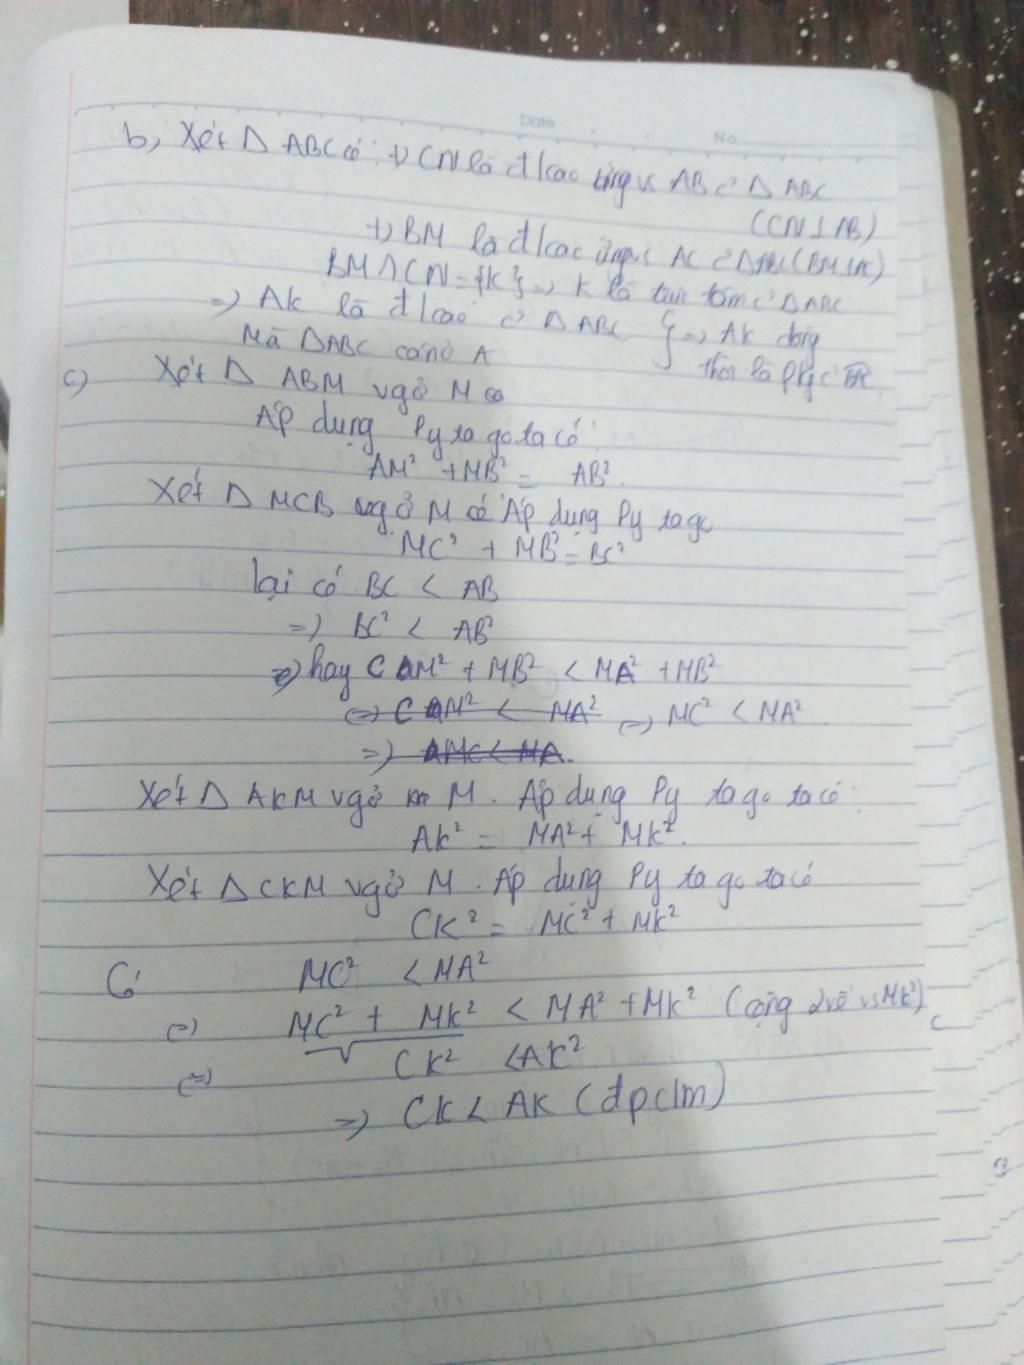 Date No
b, Xét Δ ABC có: +) CN là đ/cao ứng vs AB c̉ Δ ABC
(CN ⊥ AB)
+) BM là đ/cao ứng vs AC c̉ Δ ABC (BM ⊥ AC)
BM ∩ CN = {K} => K là trực tâm c̉ Δ ABC
=> AK là đ/cao c̉ Δ ABC } => AK đồng
Mà ΔABC cân ở A thời là p/g c̉
c) Xét Δ ABM vg ở M có
Áp dụng Py ta go ta có:
AM² + MB² = AB².
Xét Δ MCB vg ở M có Áp dụng Py ta go
MC² + MB² = BC²
lại có BC < AB
=> BC² < AB²
=> hay CM² + MB² < MA² + MB²
(=) CM² < MA² (=) MC² < MA²
=> MC < MA.
Xét Δ AKM vg ở M. Áp dụng Py ta go ta có:
AK² = MA² + MK².
Xét Δ CKM vg ở M. Áp dụng Py ta go ta có
CK² = MC² + MK²
Có MC² < MA²
(=) MC² + MK² < MA² + MK² (cộng 2 vế vs MK²)
(=) CK² < AK²
=> CK < AK (đpc/m)